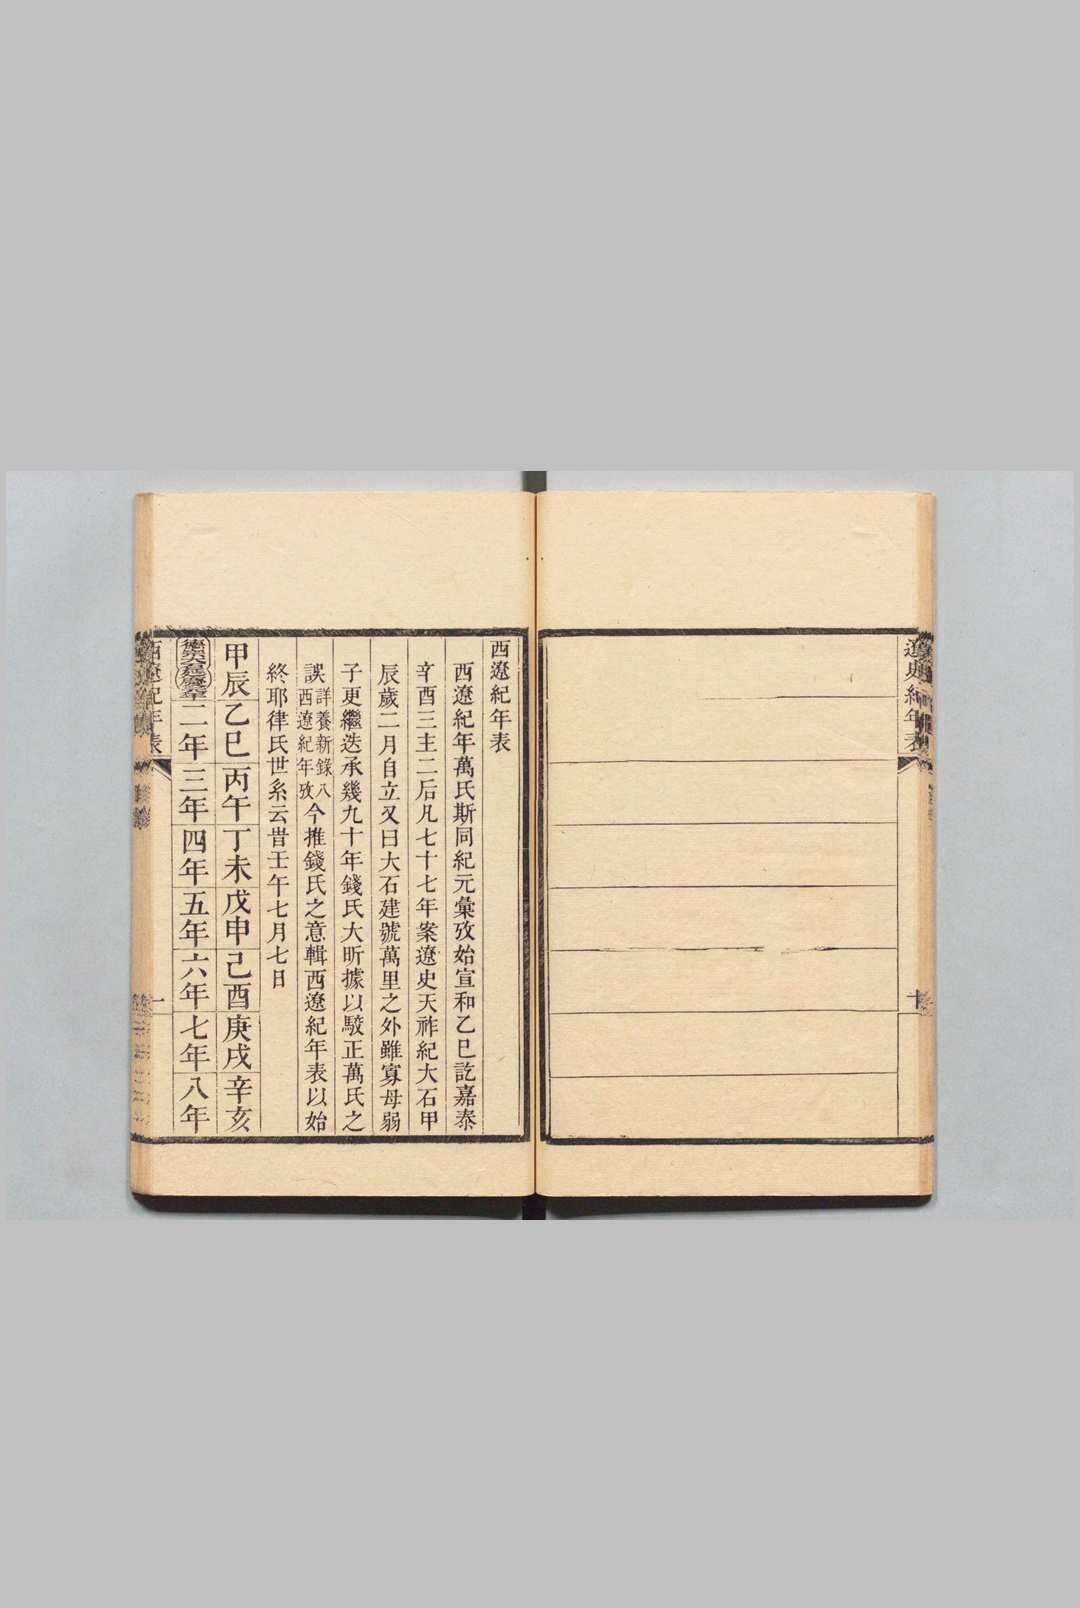 遼史紀年表
十
西遼紀年表
西遼紀年萬氏斯同紀元彙攷始宣和乙巳訖嘉泰
辛酉三主二后凡七十七年案遼史天祚紀大石甲
辰歲二月自立又曰大石建號萬里之外雖寡母弱
子更繼迭承幾九十年錢氏大昕據以駮正萬氏之
誤詳養新錄八西遼紀年攷今推錢氏之意輯西遼紀年表以始
終耶律氏世系云昔壬午七月七日
甲辰乙巳丙午丁未戊申己酉庚戌辛亥
德宗大石二年三年四年五年六年七年八年
西遼紀年表
一